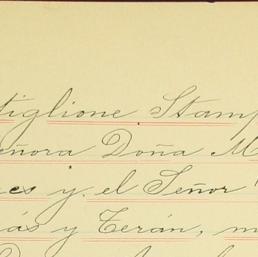 tiglione Stamp
eñora Doña M
es y el Señor
ás y Terán, m